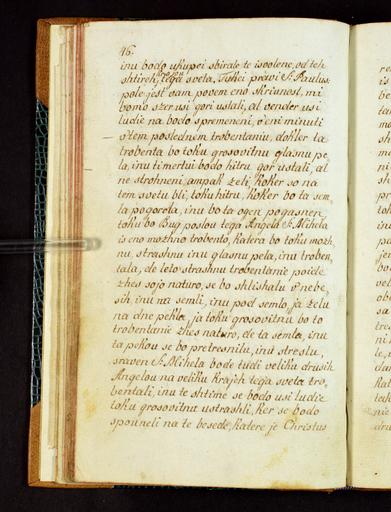 46.
inu bodo ukupei sbirale te isvolene, od teh
shtireh krajou tega sveta, Tukei pravi S: Paulus,
pole jest vam povem eno skriunost, mi
bomo szer usi gori ustali, al vender usi
ludie na bodo spremeneni, v'eni minuti
v'tem poslednem trobentaniu, dokler ta
trobenta bo toku grosovitnu glasnu pe,,
la, inu ti mertui bodo hitru gor ustali, al
ne strohneni, ampak zeli, koker so na
tem svetu bli, toku hitru, koker bo ta sem,,
la pogorela, inu bo ta ogen pogasnen
toku bo Bug poslou tega Angela S: Mihela
is eno mozhno trobento, katera bo toku mozh,,
nu, strashnu inu glasnu pela, inu troben,,
tala, de leto strashnu trobentanie poide
zhes sojo naturo, se bo shlishalu v'nebe,,
sih, inu na semli, inu pod semlo, ja zelu
na dne pekla, ja toku grosovitnu bo to
trobentanie zhes naturo, de ta semla, inu
ta pekou se bo pretresnilu, inu streslu,
sraven S: Mihela bode tudi veliku drusih
Angelou na veliku krajeh tega sveta tro,,
bentali, inu te shtime se bodo usi ludie
toku grosovitnu ustrashli, ker se bodo
spouneli na te besede, katere je Christus